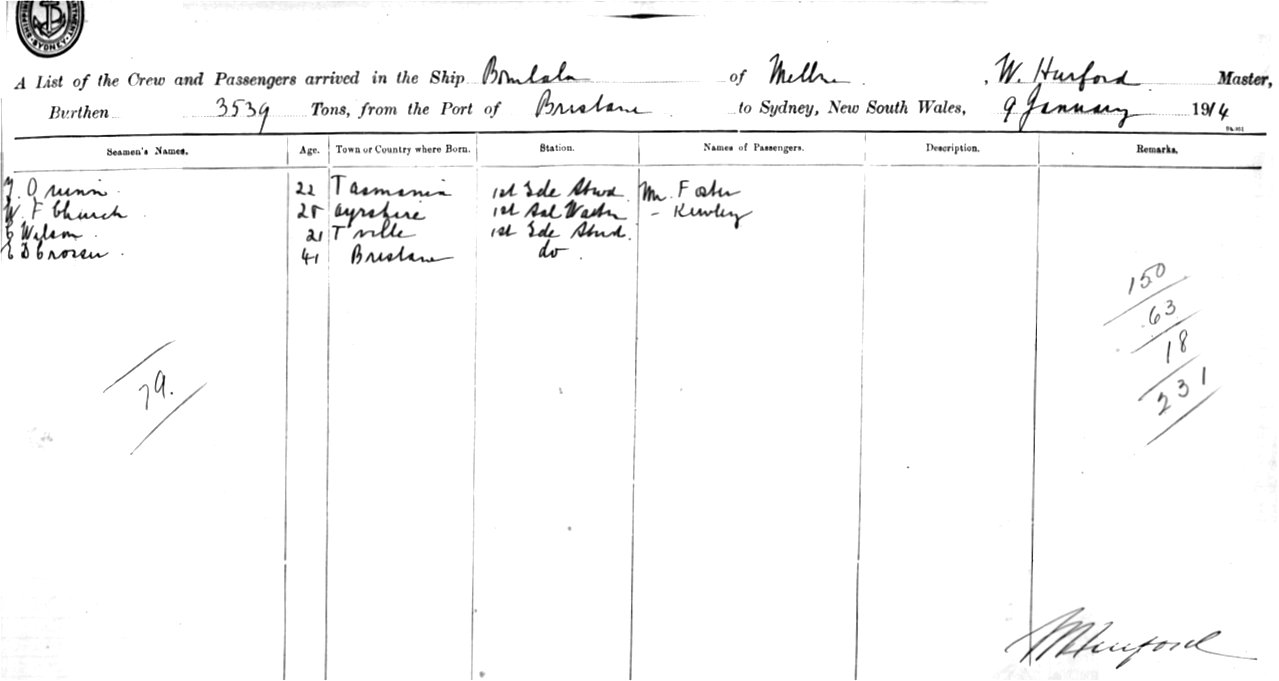 SHIPPING DEPARTMENT SYDNEY
A List of the Crew and Passengers arrived in the Ship Bombala of Melbne, W. Hurford Master,
Burthen 3539 Tons, from the Port of Brisbane to Sydney, New South Wales, 9 January 1914
Seamen's Names. Age. Town or Country where Born. Station. Names of Passengers. Description. Remarks.
Quinn 22 Tasmania 1st Sde Stwd Mr Foster
W. F Church Ayrshire 1st Sal Waiter - Kewley
E Wilson 21 Tville 1st Sde Stwd.
E D Crosser 41 Brisbane do.
150
63
18
231
79.
WHurford